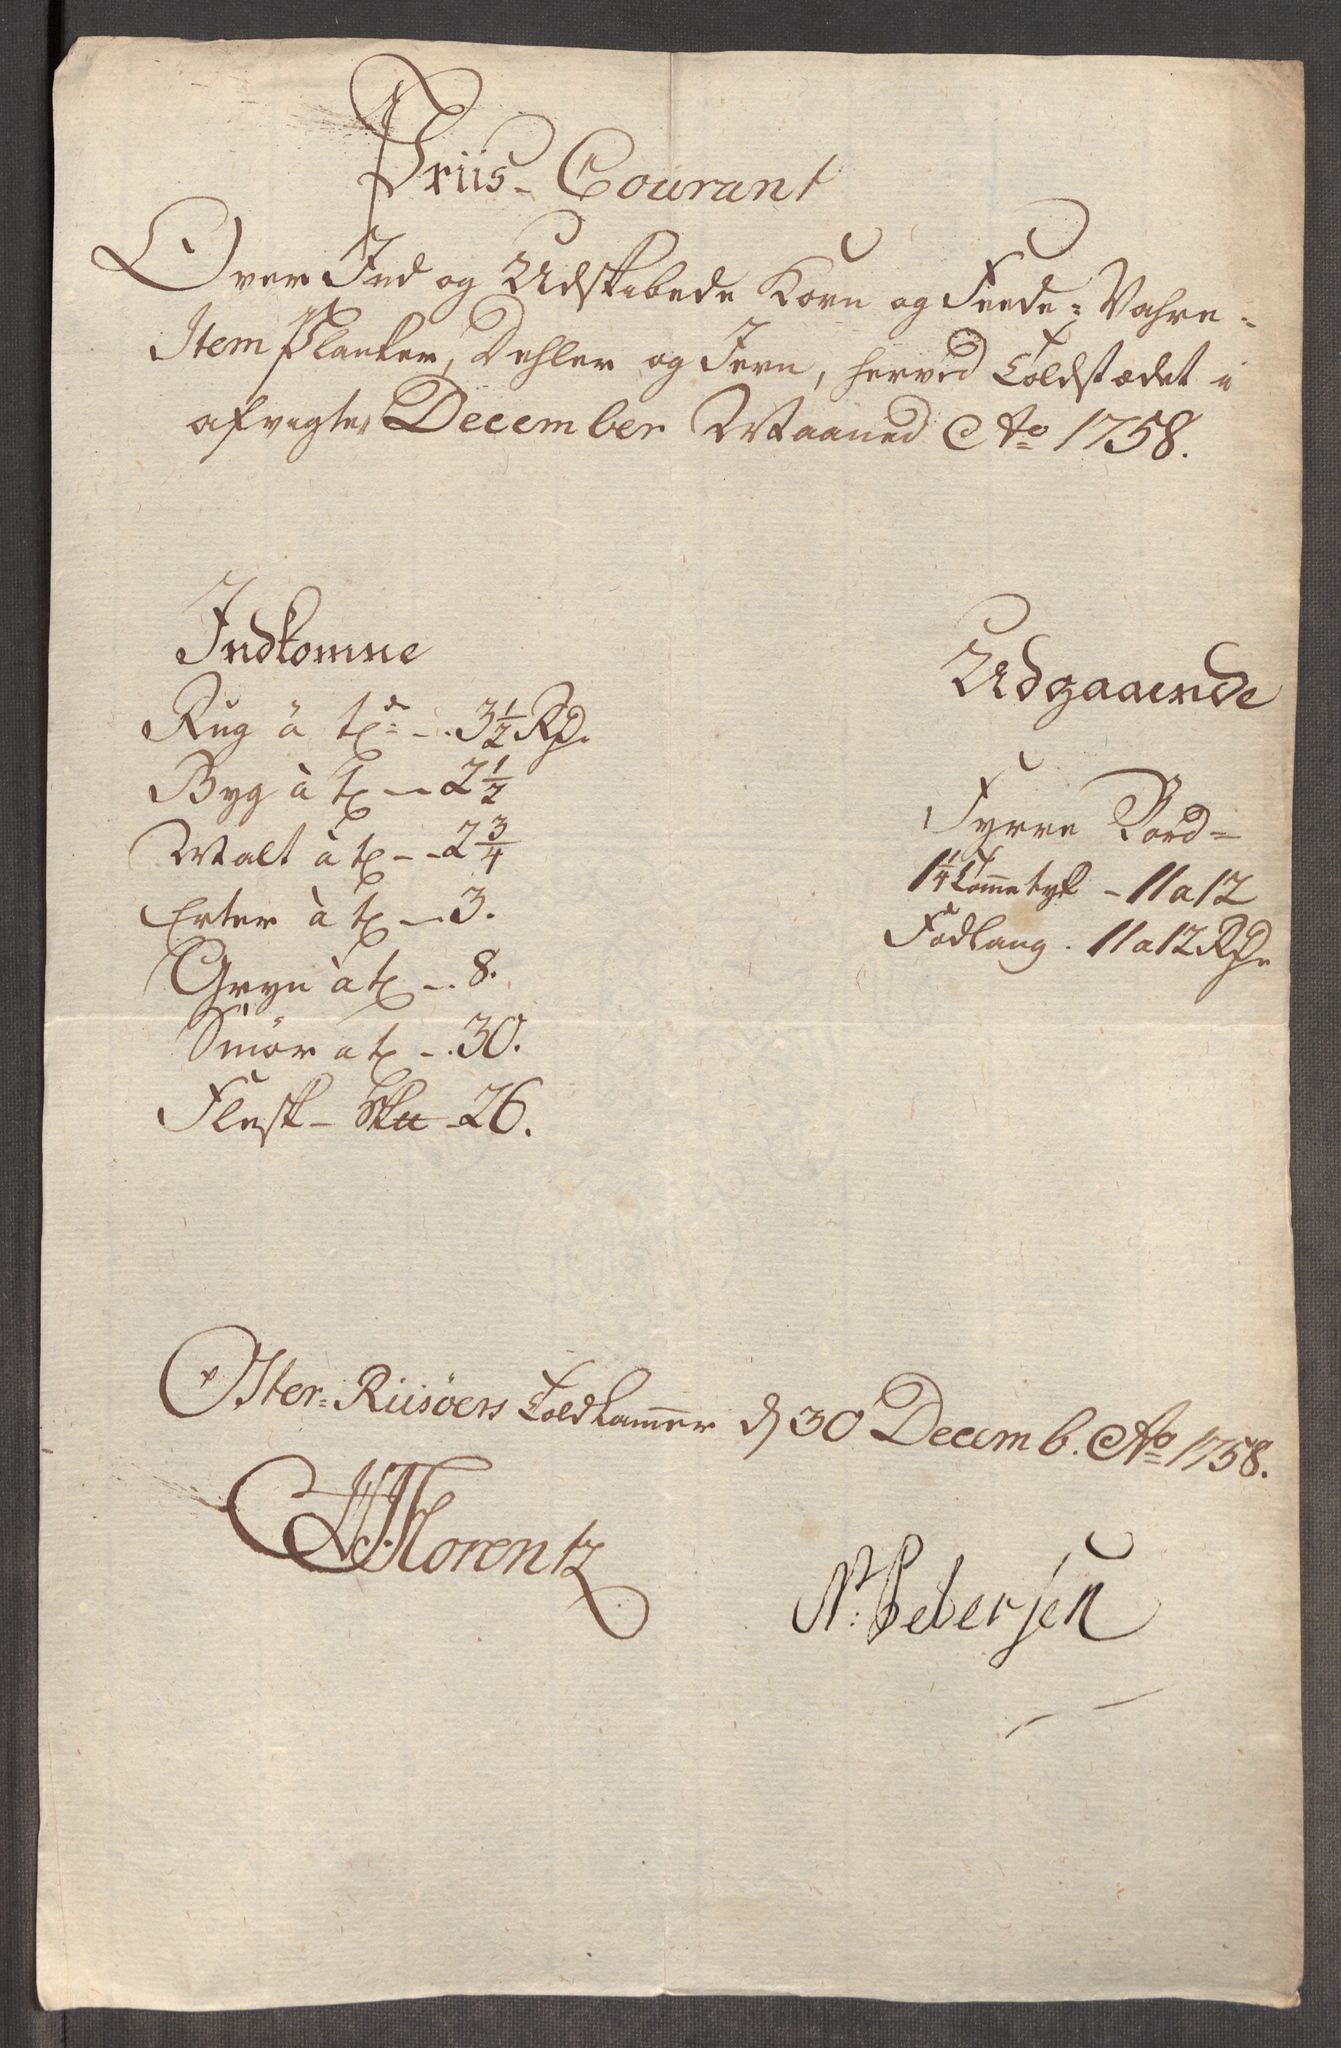 Priis- Courant
Over Ind og Udskibede Korn og Feede= Vahre-
Item Planker, Dehler og Jern, herved Toldstædet i
afvigte December Maaned Ao 1758.
Indkomne
Rug â tde - . 3½ Rd.
Byg à t - 2½
Malt à t - - 2¾
Erter à t - 3.
Gryn à t - . 8.
Smör a t - . 30.
Flesk - - 26.
Udgaaende
Fyrre Bord=
1¼ Tomme tyk - 11 a 12
Fod lang . 11 a 12 Rd.
Öster= Riisöers Toldkammer d 30 Decemb. Ao 1758.
Florentz
N: Petersen